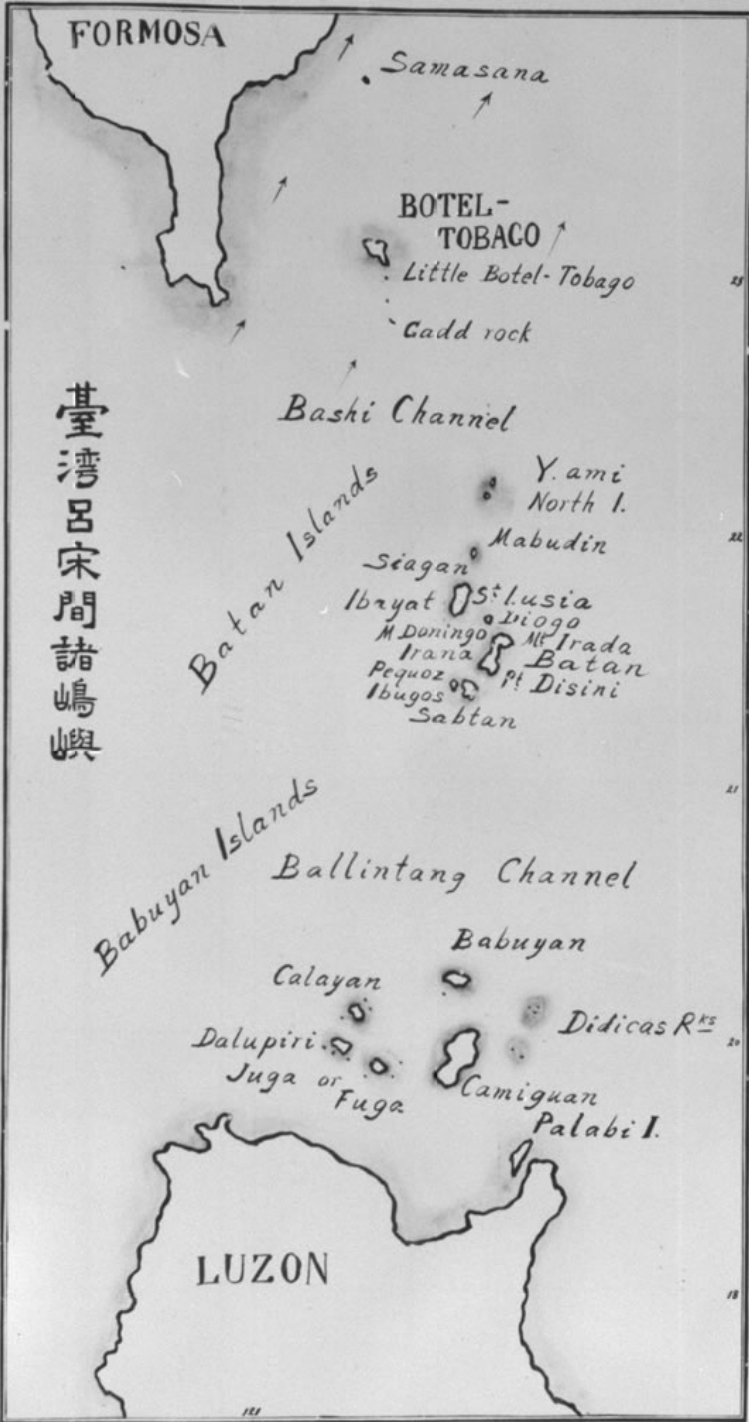 FORMOSA
Samasana
BOTEL-
TOBAGO
Little Botel-Tobago
23
Gadd rock
Bashi Channel
臺灣呂宋間諸嶋嶼
Batan Islands
Y.ami
North I.
22
Mabudin
Siagan
Ibayat
St. Lusia
Diogo
M.Doningo
Mt Irada
Irana
Batan
Pequoz
Pt Disini
Ibugos
Sabtan
21
Babuyan Islands
Ballintang Channel
Babuyan
Calayan
Didicas Rks
Dalupiri
20
Juga or
Fuga
Camiguan
Palabi I.
LUZON
18
121